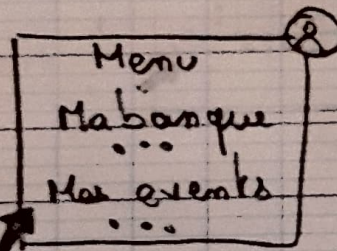 Menu
Ma banque
...
Mes events
...